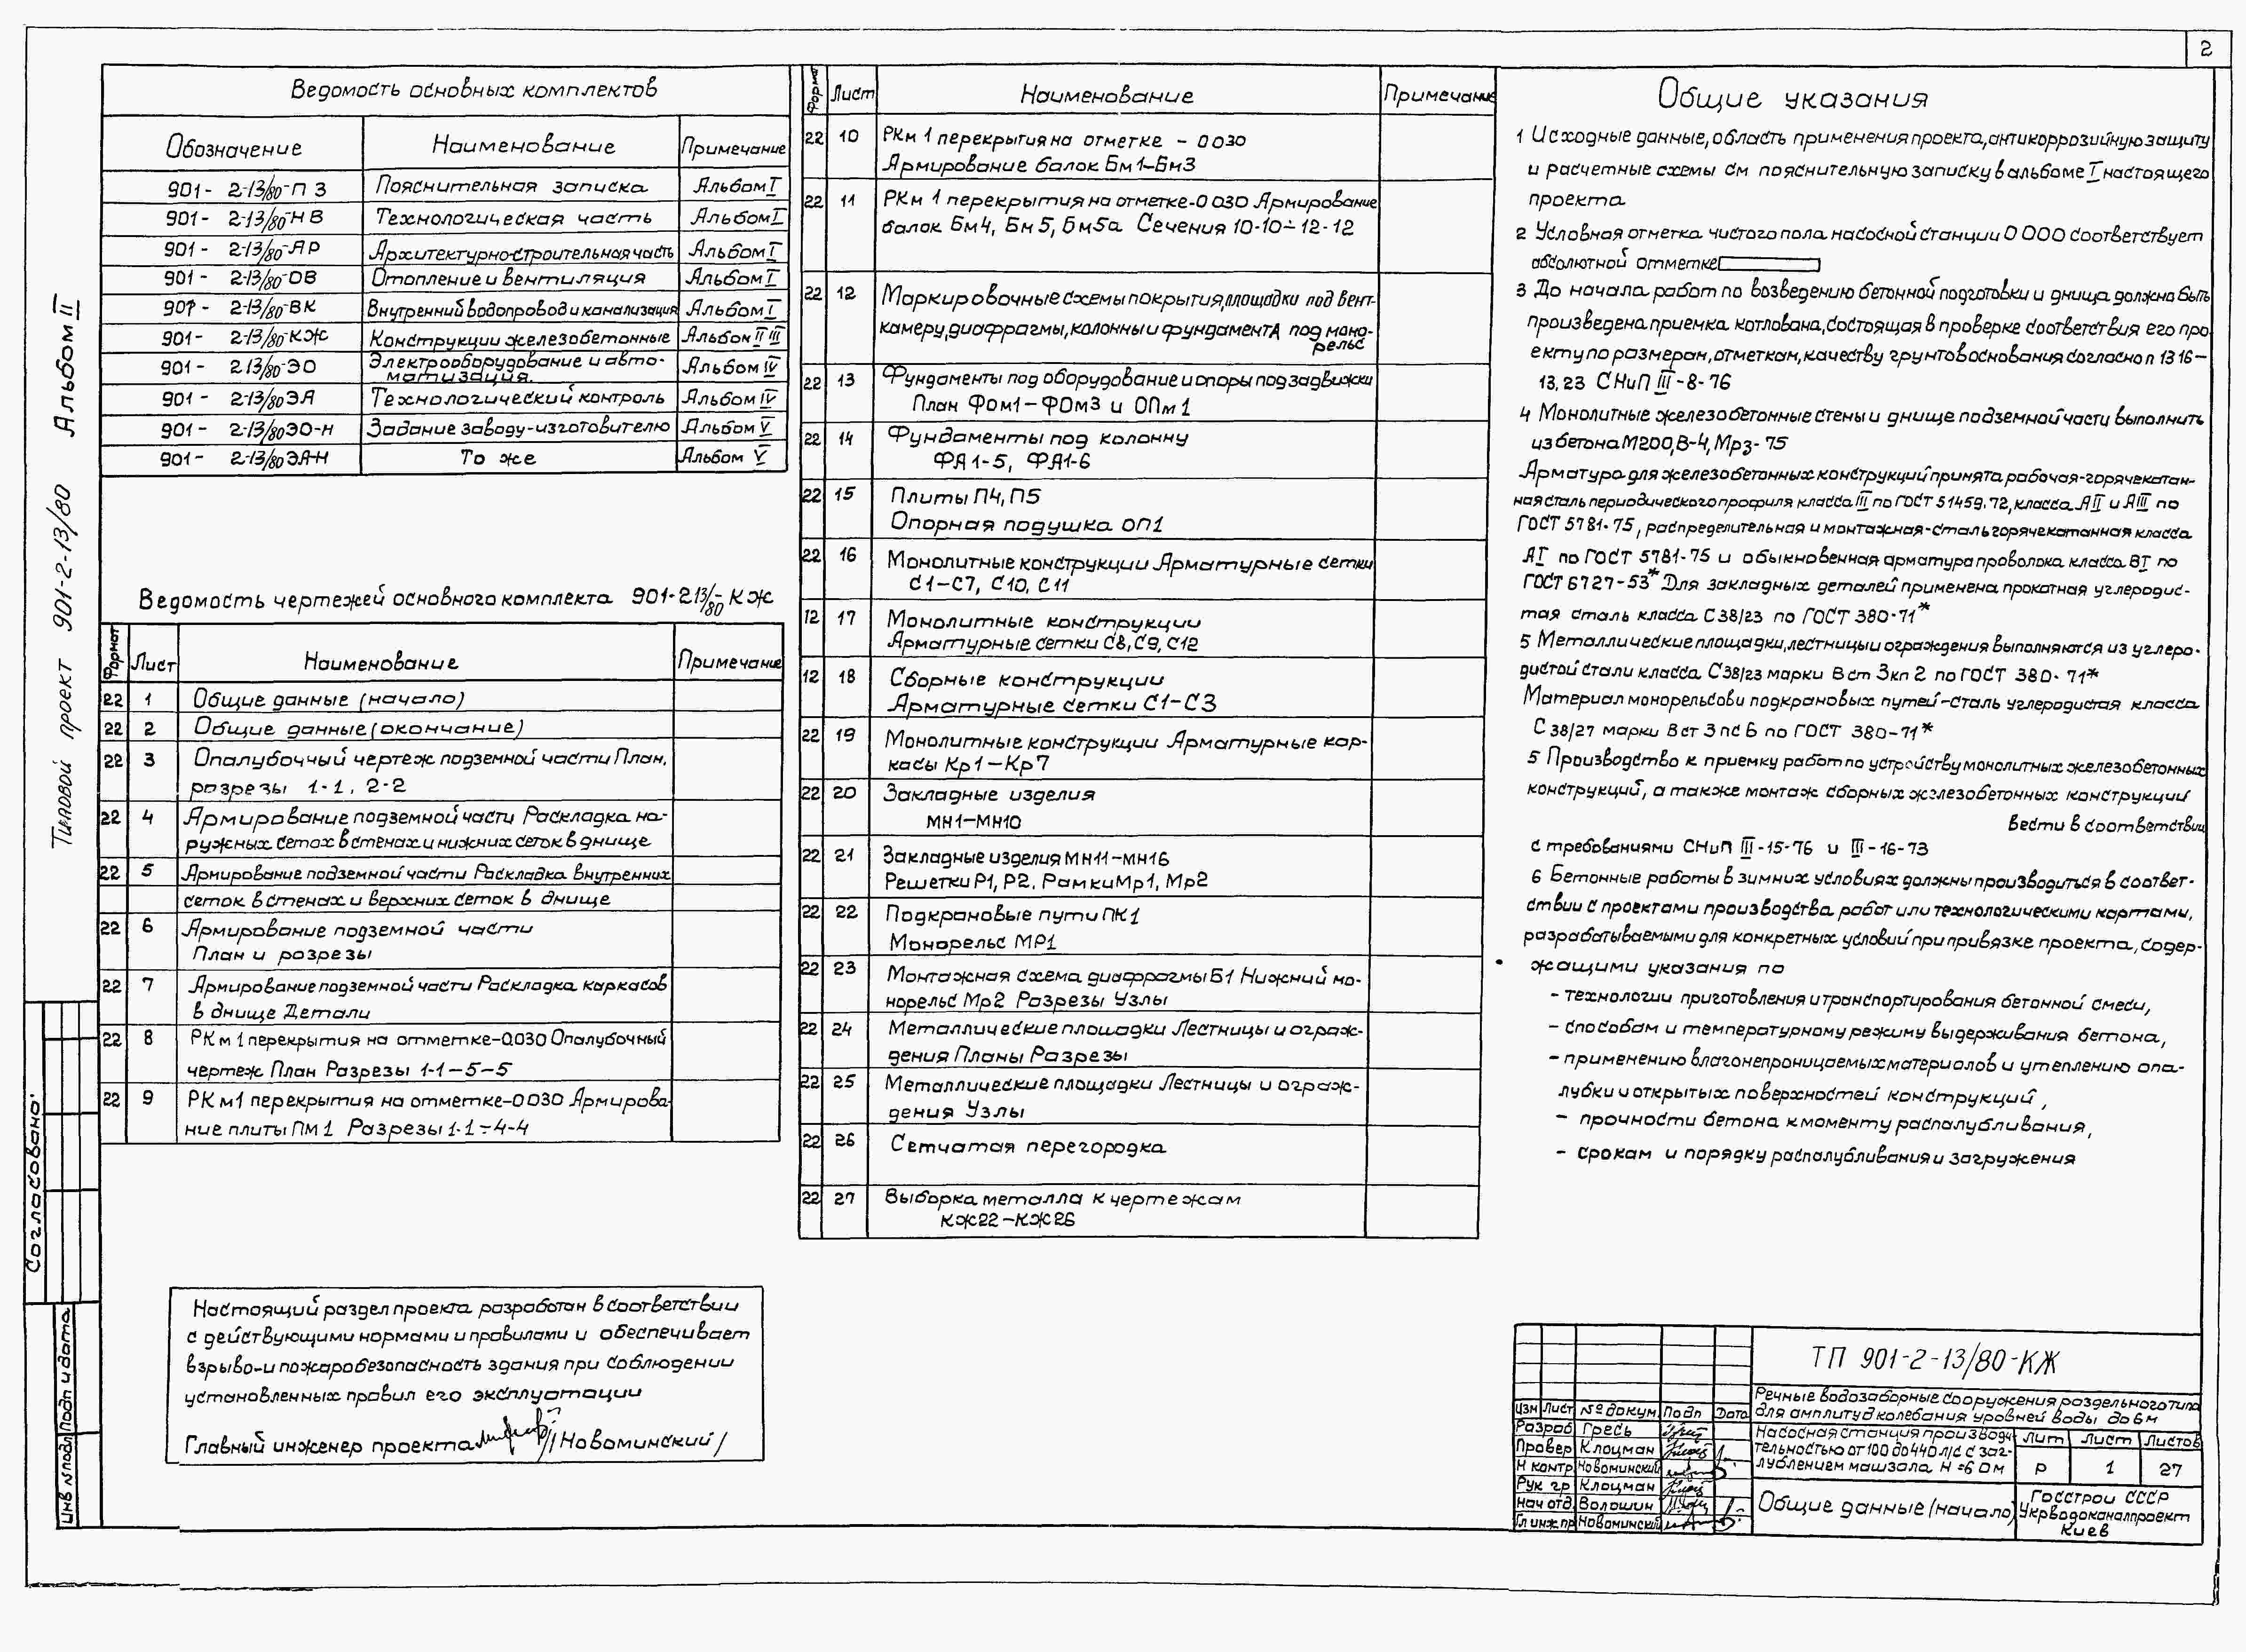 2
Альбом II
Типовой проект 901-2-13/80
Согласовано:
Инв №подл Подп и дата
Ведомость основных комплектов
Обозначение Наименование Примечание
901- 2-13/80-ПЗ Пояснительная записка Альбом I
901- 2-13/80-НВ Технологическая часть Альбом I
901- 2-13/80-АР Архитектурно-строительная часть Альбом I
901- 2-13/80-ОВ Отопление и вентиляция Альбом I
901- 2-13/80-ВК Внутренний водопровод и канализация Альбом I
901- 2-13/80-КЖ Конструкции железобетонные Альбом II III
901- 2 13/80-ЭО Электрооборудование и авто-
матизация. Альбом IV
901- 2-13/80 ЭА Технологический контроль Альбом IV
901- 2-13/80 ЭО-Н Задание заводу-изготовителю Альбом V
901- 2-13/80 ЭА-Н То же Альбом V
Ведомость чертежей основного комплекта 901-2 13/80-КЖ
Формат Лист Наименование Примечание
22 1 Общие данные (начало)
22 2 Общие данные (окончание)
22 3 Опалубочный чертеж подземной части План,
розрезы 1-1, 2-2
22 4 Армирование подземной части Раскладка на-
ружных сеток в стенах и нижних сеток в днище
22 5 Армирование подземной части Раскладка внутренних
сеток в стенах и верхних сеток в днище
22 6 Армирование подземной части
План и розрезы
22 7 Армирование подземной части Раскладка каркасов
в днище Детали
22 8 РКм 1 перекрытия на отметке-0.030 Опалубочный
чертеж План Разрезы 1-1-5-5
22 9 РКм1 перекрытия на отметке-0 030 Армирова-
ние плиты Пм 1 Разрезы 1-1÷4-4
Настоящий раздел проекта разработан в соответствии
с действующими нормами и правилами и обеспечивает
взрыво-и пожаробезопасность здания при соблюдении
установленных правил его эксплуатации
Главный инженер проекта /Новоминский/
Формат Лист Наименование Примечание
22 10 РКм 1 перекрытия на отметке - 0 030
Армирование балок Бм1-Бм3
22 11 РКм 1 перекрытия на отметке-0 030 Армирование
балок Бм4, Бм5, Бм5а Сечения 10-10÷12-12
22 12 Маркировочные схемы покрытия, площадки под вент-
камеру, диафрагмы, колонны и фундамента под моно-
рельс
22 13 Фундаменты под оборудование и опоры под задвижки
План ФОм1-ФОм3 и ОПм1
22 14 Фундаменты под колонну
ФА1-5, ФА1-6
22 15 Плиты П4, П5
Опорная подушка ОП1
22 16 Монолитные конструкции Арматурные сетки
С1-С7, С10, С11
12 17 Монолитные конструкции
Арматурные сетки С8, С9, С12
12 18 Сборные конструкции
Арматурные сетки С1-С3
22 19 Монолитные конструкции Арматурные кар-
касы Кр1-Кр7
22 20 Закладные изделия
МН1-МН10
22 21 Закладные изделия МН11-МН16
Решетки Р1, Р2. Рамки Мр1, Мр2
22 22 Подкрановые пути ПК1
Монорельс МР1
22 23 Монтажная схема диафрагмы Б1 Нижний мо-
норельс Мр2 Разрезы Узлы
22 24 Металлические площадки Лестницы и ограж-
дения Планы Разрезы
22 25 Металлические площадки Лестницы и ограж-
дения Узлы
22 26 Сетчатая перегородка
22 27 Выборка металла к чертежам
КЖ22-КЖ26
Общие указания
1 Исходные данные, область применения проекта, антикоррозийную защиту
и расчетные схемы см пояснительную записку в альбоме I настоящего
проекта
2 Условная отметка чистого пола насосной станции 0 000 соответствует
абсолютной отметке
3 До начала работ по возведению бетонной подготовки и днища должна быть
произведена приемка котлована, состоящая в проверке соответствия его про
екту по размерам, отметкам, качеству грунтов основания согласно п 13 16-
13, 23 СНиП III-8-76
4 Монолитные железобетонные стены и днище подземной части выполнить
из бетона М200, В-4, Мрз-75
Арматура для железобетонных конструкций принята рабочая-горячекатан-
ная сталь периодического профиля класса III по ГОСТ 5 1459. 72, класса АII и АIII по
ГОСТ 5781-75, распределительная и монтажная-сталь горячекатанная класса
АI по ГОСТ 5781-75 и обыкновенная арматура проволока класса ВI по
ГОСТ 6727-53* Для закладных деталей применена прокатная углеродис-
тая сталь класса С 38/23 по ГОСТ 380-71*
5 Металлические площадки, лестницы и ограждения выполняются из углеро-
дистой стали класса С38/23 марки Вст 3кп 2 по ГОСТ 380-71*
Материал монорельсов и подкрановых путей-сталь углеродистая класса
С 38/27 марки Вст 3 пс 6 по ГОСТ 380-71*
5 Производство к приемку работ по устройству монолитных железобетонных
конструкций, а также монтаж сборных железобетонных конструкций
вести в соответствии
с требованиями СНиП III-15-76 и III-16-73
6 Бетонные работы в зимних условиях должны производиться в соответ-
ствии с проектами производства работ или технологическими картами,
разрабатываемыми для конкретных условий при привязке проекта, содер-
жащими указания по
- технологии приготовления и транспортирования бетонной смеси,
- способам и температурному режиму выдерживания бетона,
- применению влагонепроницаемых материалов и утеплению опа-
лубки и открытых поверхностей конструкций,
- прочности бетона к моменту распалубливания,
- срокам и порядку распалубливания и загружения
ТП 901-2-13/80-КЖ
Речные водозаборные сооружения раздельного типа
для амплитуд колебания уровней воды до 6м
Изм Лист №докум. Подп Дата
Разраб Гресь
Провер Клоцман
Н контр Новоминский
Рук гр Клоцман
Нач отд. Волошин
Гл инж пр Новоминский
Насосная станция производи
тельностью от 100 до 440 л/с с заг-
лублением машзала Н =6 0м
Лит Лист Листов
Р 1 27
Общие данные (начало)
Госстрои СССР
Укрводоканалпроект
Киев